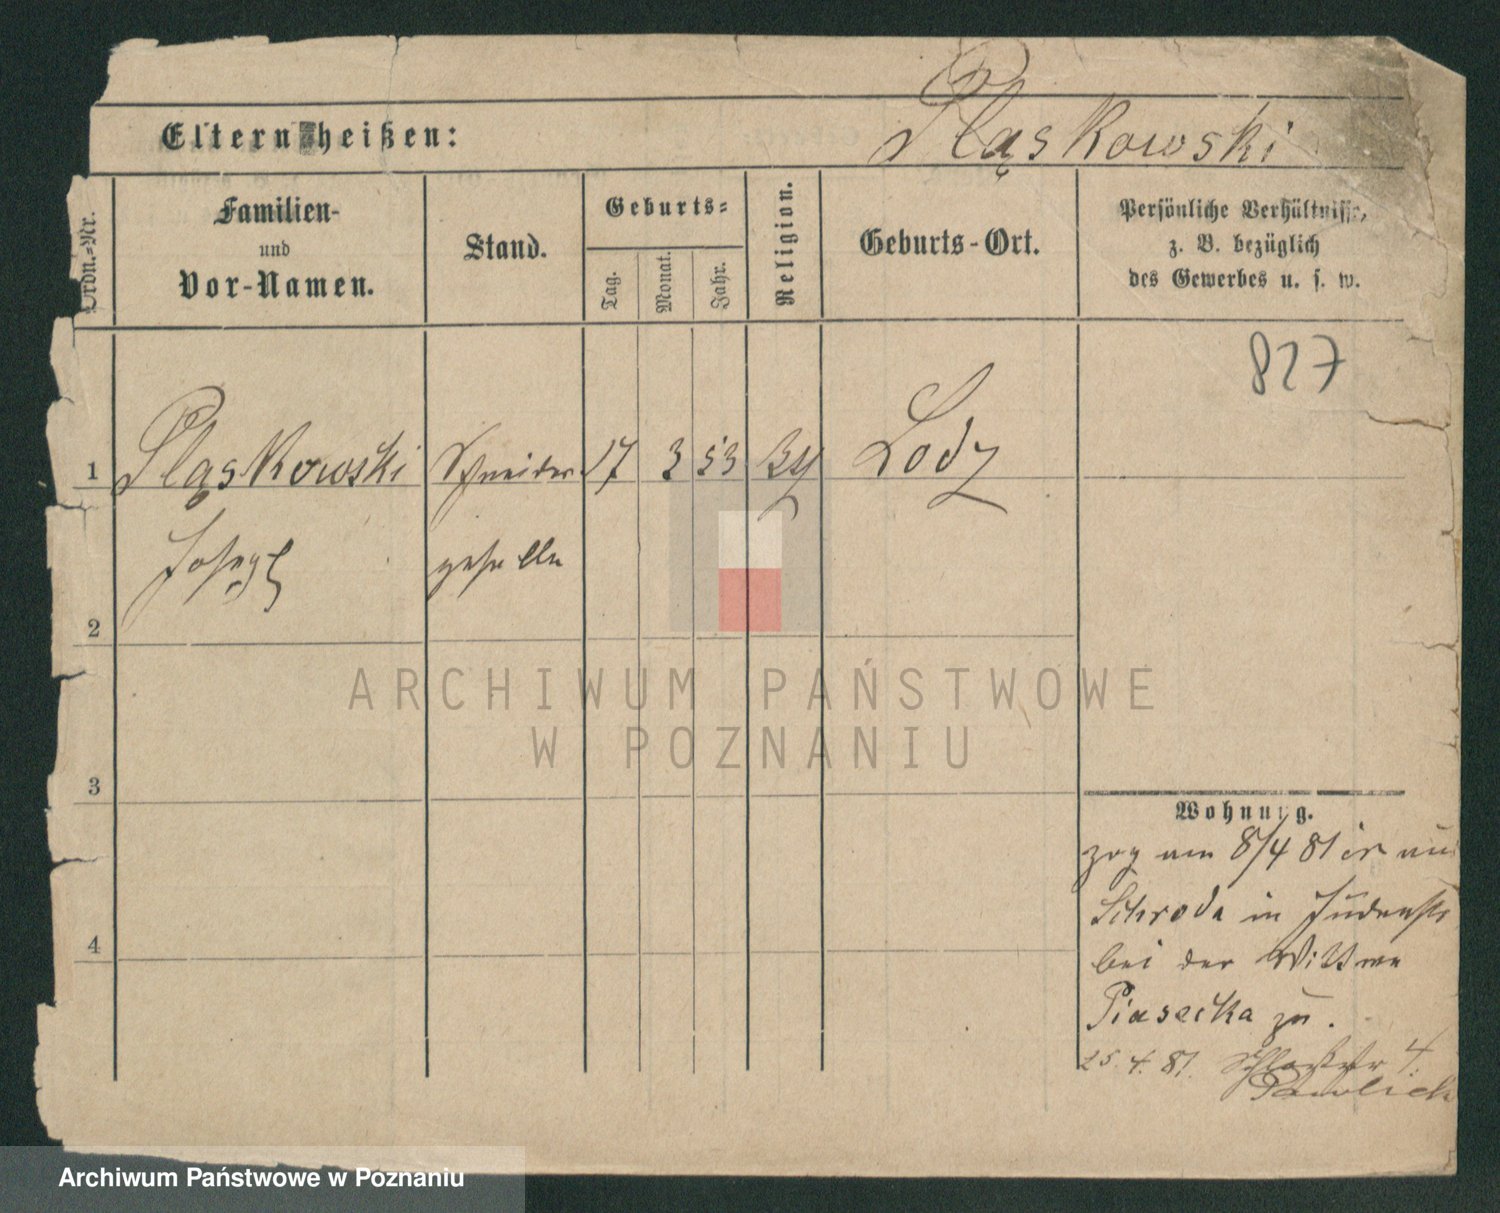 Eltern heißen:
Pląskowski
Ordn.-Nr.
Familien-
und
Vor-Namen.
Stand.
Geburts-
Tag.
Monat.
Jahr.
Religion.
Geburts-Ort.
Persönliche Verhältnisse,
z. B. bezüglich
des Gewerbes u. s. w.
827
1 Pląskowski Schneider 17 3 53 Lodz
Josef geselle
2
ARCHIWUM PAŃSTWOWE
W POZNANIU
3
Wohnung.
zog am 8/4 81 er aus
Schroda in Judenstr
4
bei der Wittwe
Piasecka zu.
25. 4. 81. Schloßstr 4.
Pawlick
Archiwum Państwowe w Poznaniu